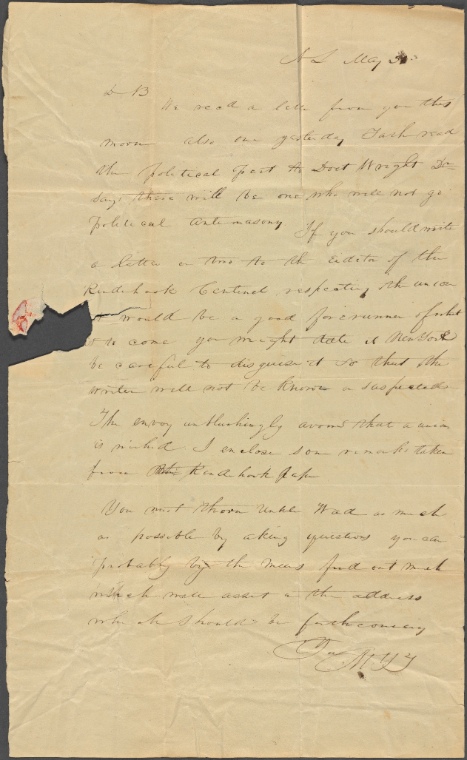 N L May 30
D B
We read a letter from you this
morn also one yesterday read
the political part to Doct Wright Dr
says there will be one who will not go
Political antimasony If you should write
a letter or two to the editor of the
Kinderhook Centinel respecting the
it would be a good forerunner of what
is to come you might date it New York
be careful to disguise it so that the
writer will not be known or suspected
The envoy unblushingly avows that a
is I enclose some remarks taken
from Kinderhook pap
You must Uncle as much
as possible by asking questions you can
probably by the means find out much
which will assist in the address
which should be forthcoming